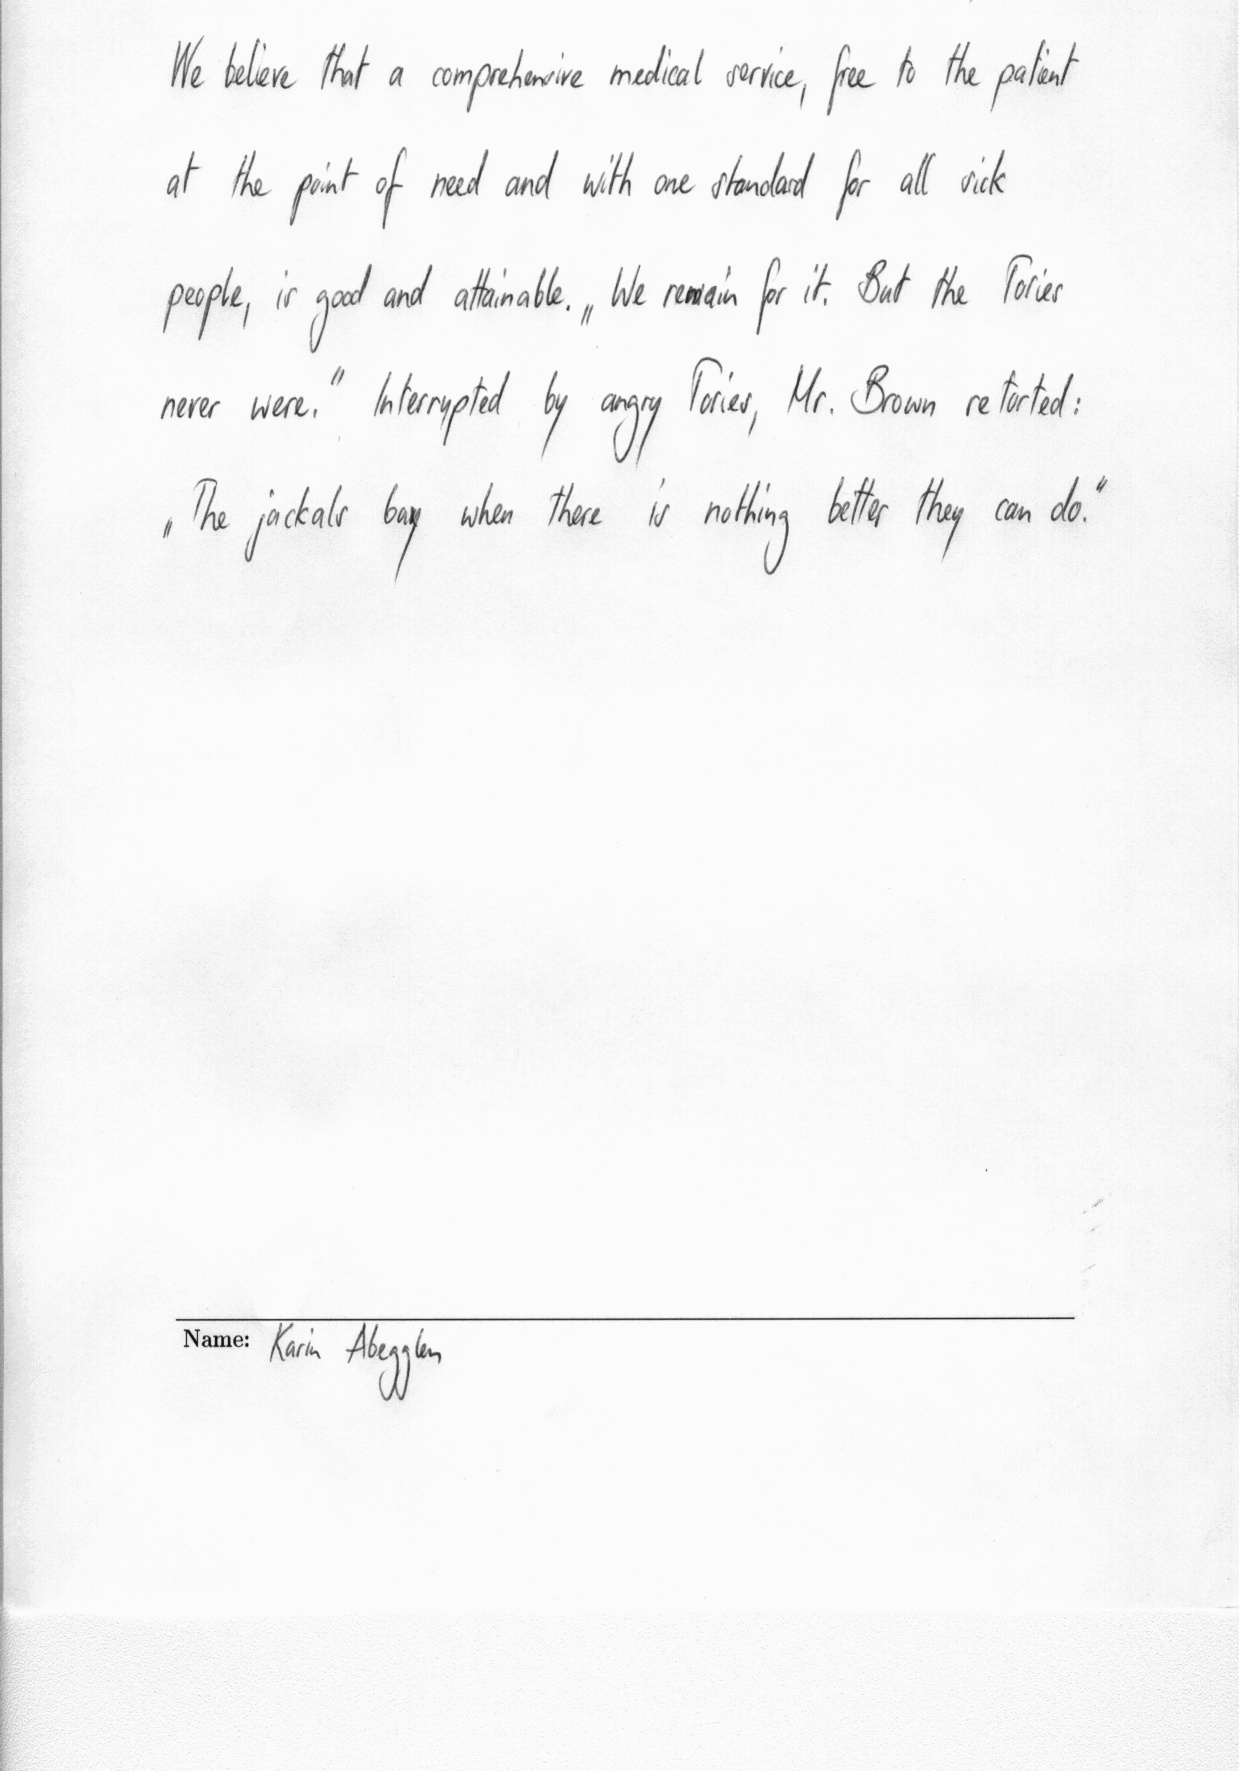 We believe that a comprehensive medical service, free to the patient
at the point of need and with one standard for all sick
people, is good and attainable. „We remain for it. But the Tories
never were." Interrupted by angry Tories, Mr. Brown retorted:
„The jackals bay when there is nothing better they can do."
Name: Karin Abegglen